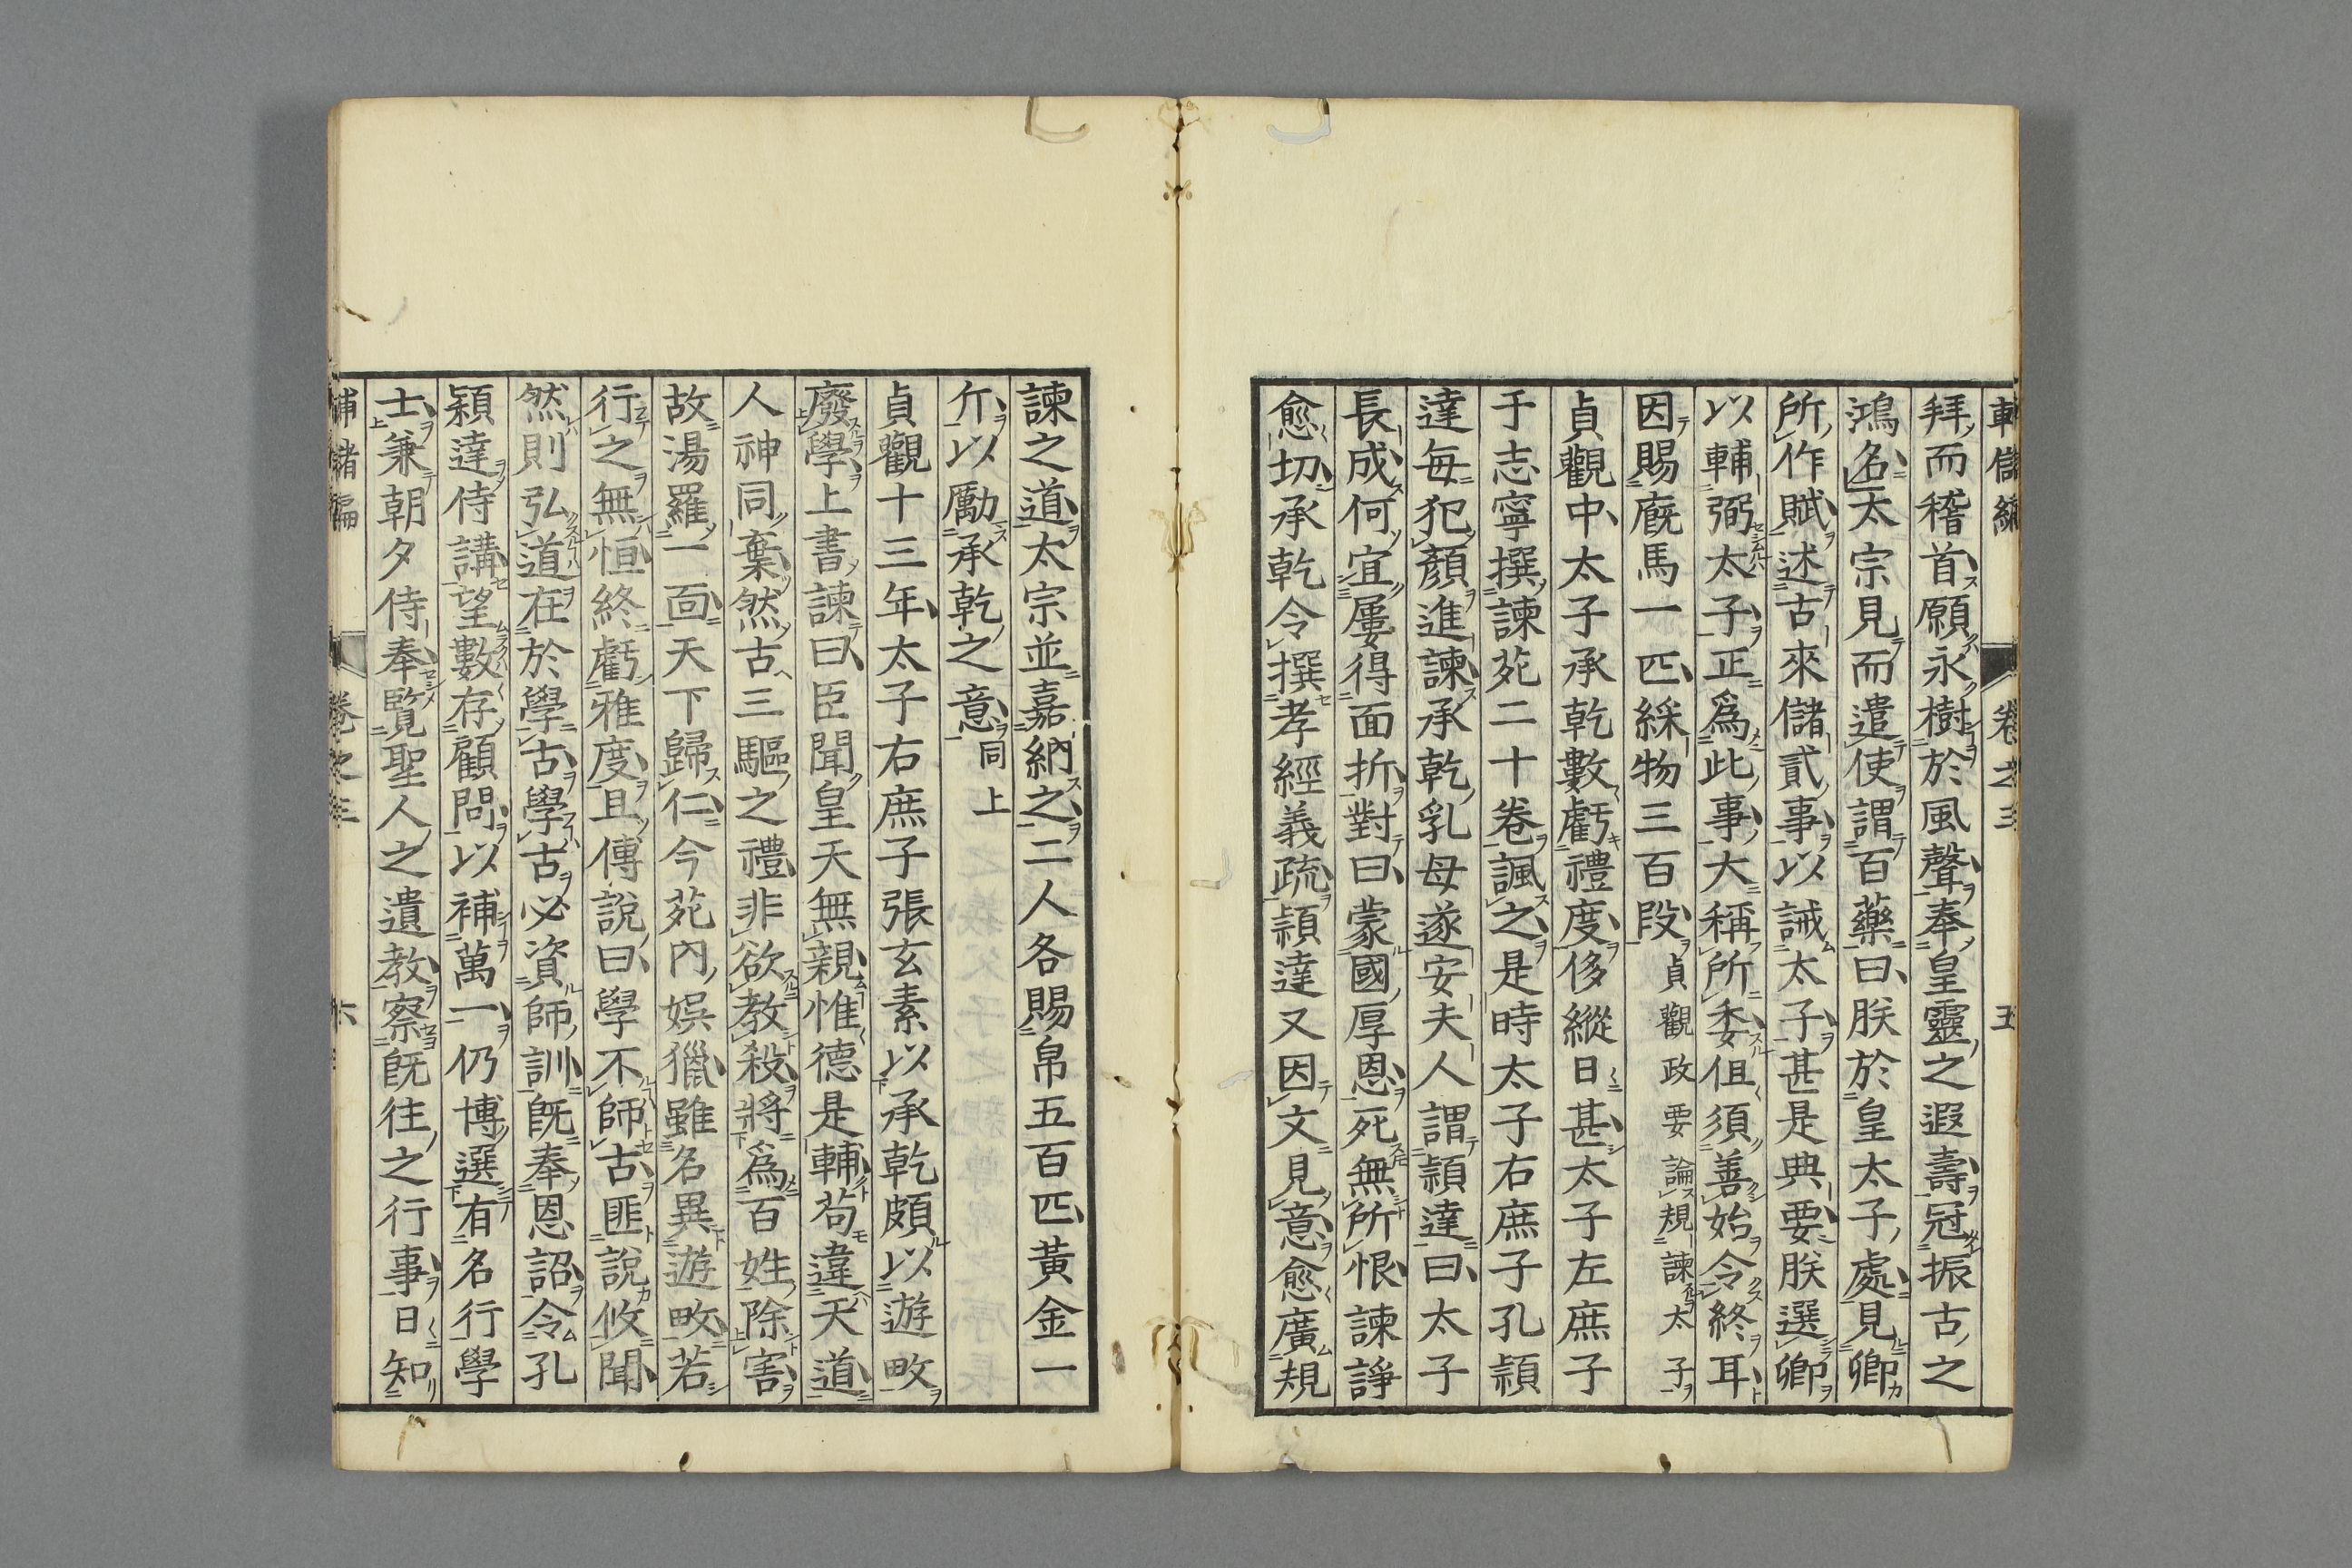 拜而稽首願永樹於風聲奉皇靈之遐壽冠振古之
鴻名太宗見而遣使謂百藥曰朕於皇太子處見卿
所作賦述古來儲貳事以誡太子甚是典要朕選卿
以輔弼太子正爲此事大稱所委但須善始令終耳
因賜廐馬一匹綵物三百段貞觀政要論規諫太子
貞觀中太子承乾數虧禮度侈縱日甚太子左庶子
于志寧撰諫苑二十卷諷之是時太子右庶子孔頴
達每犯顏進諫承乾乳母遂安夫人謂頴達曰太子
長成何宜屢得面折對曰蒙國厚恩死無所恨諫諍
愈切承乾令撰孝經義疏頴達又因文見意愈廣規
諫之道太宗並嘉納之二人各賜帛五百匹黃金一
斤以勵承乾之意同上
貞觀十三年太子右庶子張玄素以承乾頗以遊畋
廢學上書諫曰臣聞皇天無親惟德是輔苟違天道
人神同棄然古三驅之禮非欲教殺將爲百姓除害
故湯羅一面天下歸仁今苑內娯獵雖名異遊畋若
行之無恒終虧雅度且傳說曰學不師古匪說攸聞
然則弘道在於學古學古必資師訓旣奉恩詔令孔
穎達侍講望數存顧問以補萬一仍博選有名行學
士兼朝夕侍奉覽聖人之遺教察旣往之行事日知